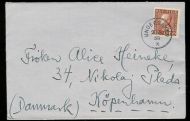 Fröken Alice Heineke,
34, Nikolaj Plads
(Danmark) Köpenhamn.